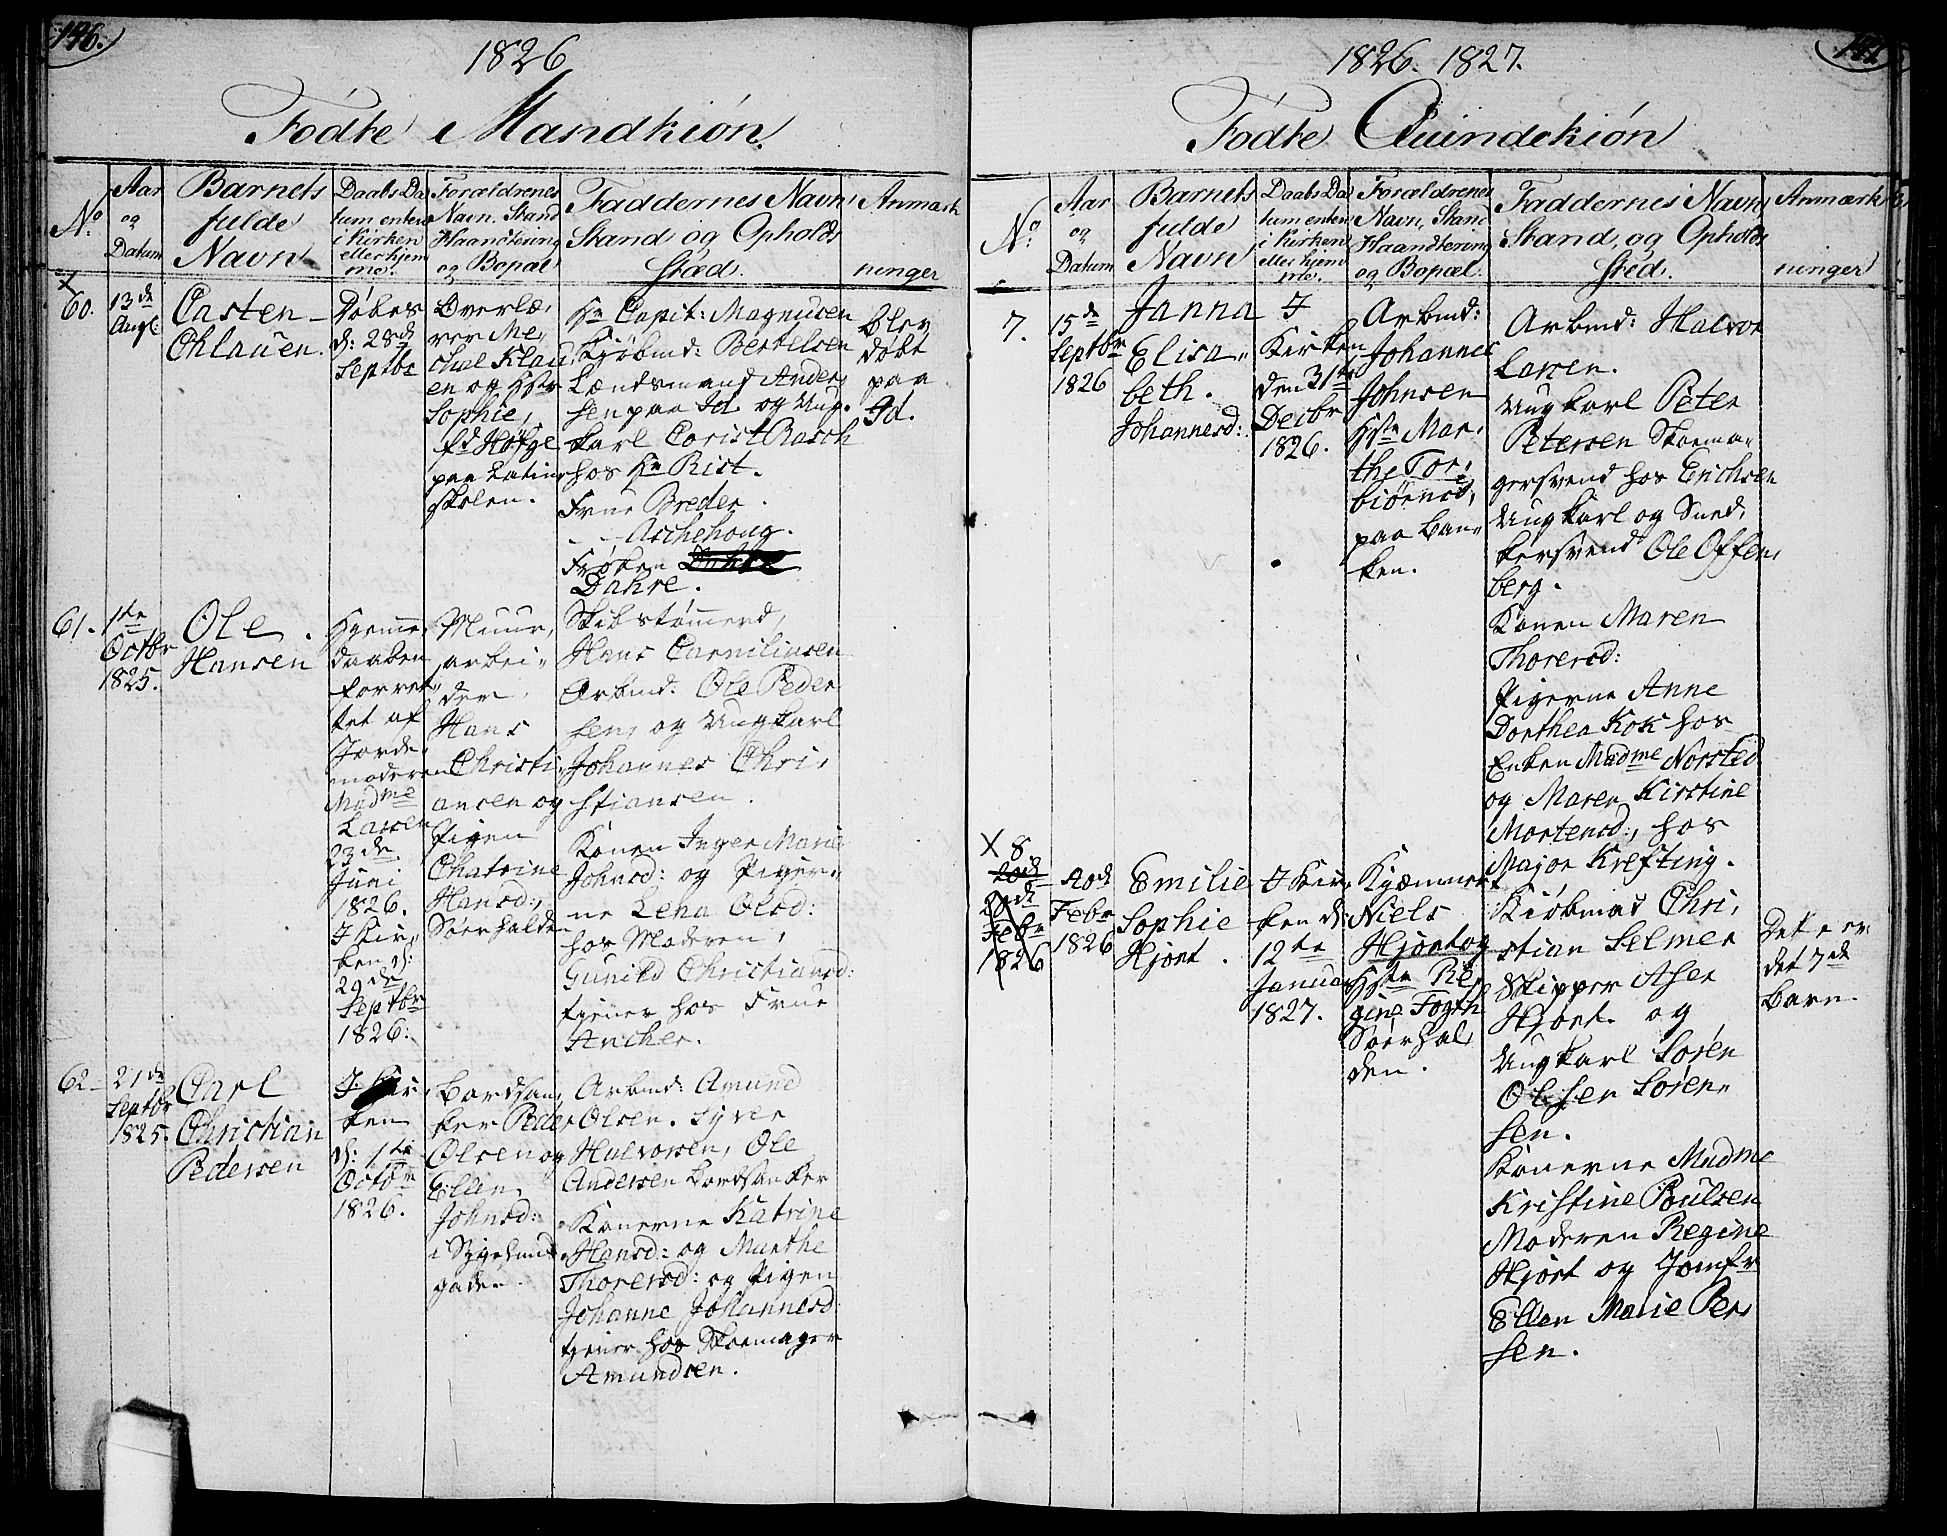 146.
1826
Fødte Mandkiön.
No.
Aar
og
Datum
Barnets
fulde
Navn
Daabs Da
tum enten
i Kirken
eller hjem
me.
Forældrenes
Navn, Stand
Haandtering
og Bopæl
Faddernes Navn
Stand og Opholds
stæd.
Anmærk
ninger
60.
13de
Aug:
Casten
Chlauen.
Døbes
d: 28de
Septbr
Overlæ,
rer Me,
chal Klau
en og Hstr
Sophie,
fd Höfge
paa Latin
skolen.
Hr Capit: Magnusen
Kjøbmd: Bertelsen
Lændsmand Ander,
sen paa Id. og Ung.
karl Corist Rasch
hos Hr Rist.
Frue Breder.
Aschehoug.
Frøken
Dahse.
blev
døbt
paa
Id.
61.
1te
Octbr
1825.
Ole.
Hansen
Hjemme,
daaben
forret,
tet af
Jorde,
moderen
Madme
Larsen
23de
Juni
1826.
I Kir,
ken d:
29de
Septbr
1826:
Muur,
arbei,
der,
Hans
Christi,
ansen og
Pigen
Chatrine
Hansd:,
Søerhalden
Skibstømmerd,
Hans Carniliusen
Arbmd: Ole Peder
sen, og Ungkarl
Johannes Chri,
stiansen.
Konen Inger Marie
Johnsd: og Piger,,
ne Lena Olsd:
hos Moderen,
Gunild Christiansd:
tjener hos Frue
Ancher.
62
21de
Septbr
1825.
Carl
Christian
Pedersen
I Kir,
ken
d: 1te
Octbr
1826.
Bordsan,
ker Peder
Olsen og
Ellen
Johnsd:
i Sygehuus
gaden.
Arbmd: Amund
Olsen. Syver
Halvorsen, Ole
Andersen Bordsanker
Konerne Katrine
Hansd: og Marthe
Thorersd: og Pigen
Johanne Johannesd:
tjener hos Skoemager
Amundsen.
1826. 1827.
Fødte Quindekiön
No.
Aar
og
Datum
Barnets
fulde
Navn
Daabs Da
tum enten
i Kirken
eller hjem
me.
Forældrenes
Navn, Stand
Haandtering
og Bopæl.
Faddernes Navn,
Stand, og Opholds
sted.
Anmærk
ninger
7.
15de
Septbr
1826
Janna
Elisa,,
beth.
Johannesd:
I
Kirken
den 31te
Decbr
1826.
Arbmd:
Johannes
Johnsen
Hstr Mar,
the Tor,
biørnsd,
paa Ban,,
ken.
Arbmd: Halvor
Larsen.
Ungkarl Peter
Petersen Skoema,,
gersvend hos Erichsen
Ungkarl og Sned,
kersvend Ole Offen,
berg.
Konen Maren
Thorersd:
Pigerne Anne
Dorthea Kok hos
Enken Madme Norsted
og Maren Kirstine
Mortensd:, hos
Major Krefting.
X 8
20de
Febr
1826
20de
Febr
1826
Emilie
Sophie
Hjort.
I Kir,
ken d:
12te
Januar
1827.
Kjæmner
Niels
Hjort og
Hstr Re,
gine Fogth
Søerhal,
den.
Kiøbmad Chri,
stian Selmer
Skipper Aser
Hjort. og
Ungkarl Søren
Olsen Søren,,
sen.
Konerne Madme
Kristine Poulsen
Moderen Regine
Hjort og Jomfr
Ellen Marie Per,
sen.
Dette er
det 7de
Barn.